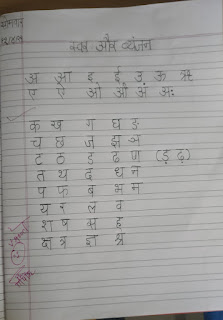 सोमवार
स्वर और व्यंजन
अ आ इ ई उ ऊ ऋ
ए ऐ ओ औ अं अः
क ख ग घ ङ
च छ ज झ ञ
ट ठ ड ढ ण (ड़ ढ़)
त थ द ध न
प फ ब भ म
य र ल व
श ष स ह
क्ष त्र ज्ञ श्र